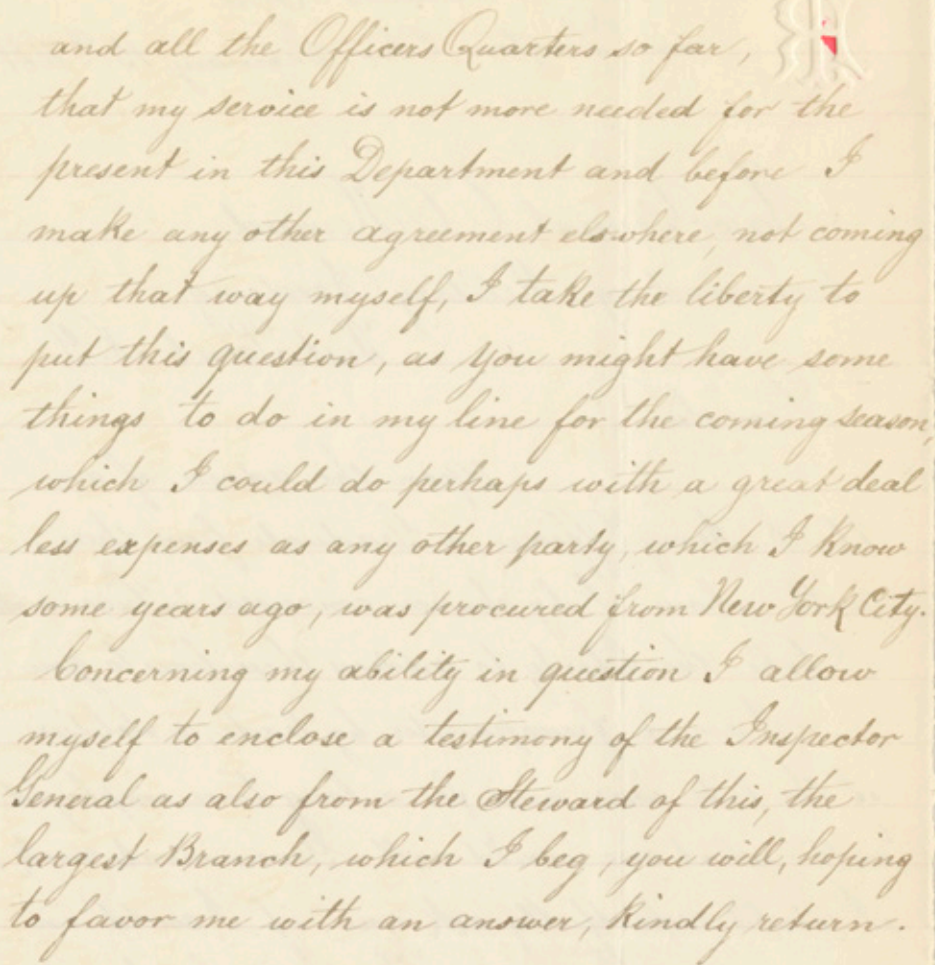 and all the Officers Quarters so far,
that my service is not more needed for the
present in this Department and before I
make any other agreement elswhere, not coming
up that way myself, I take the liberty to
put this question, as you might have some
things to do in my line for the coming season,
which I could do perhaps with a great deal
less expenses as any other party, which I know
some years ago, was procured from New York City.
Concerning my ability in question I allow
myself to enclose a testimony of the Inspector
General as also from the Steward of this, the
largest Branch, which I beg, you will, hoping
to favor me with an answer, kindly return.